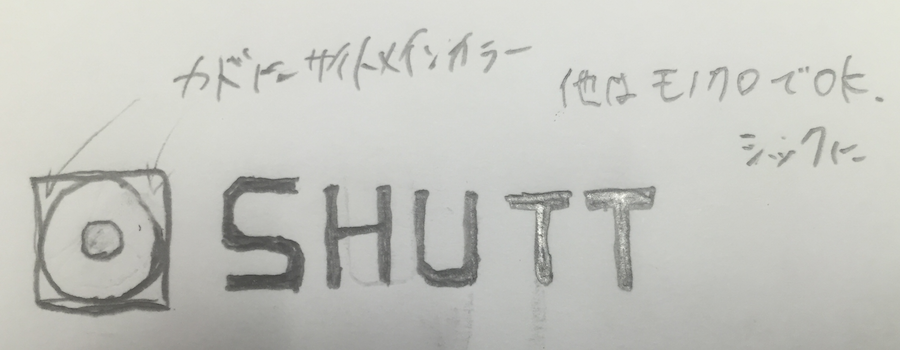 カドに サイトメインカラー
他は モノクロでOK.
シックに
SHUTT